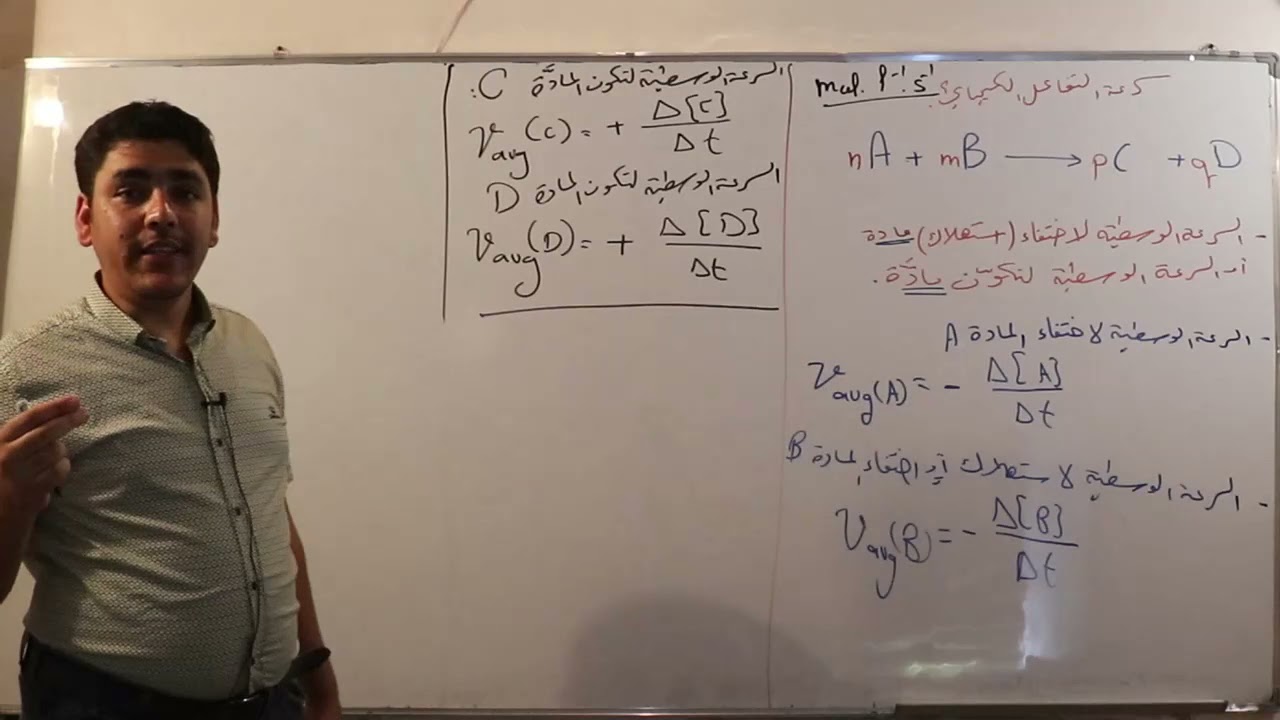 سرعة التفاعل الكيميائي؟: mol. l⁻¹. s⁻¹
nA + mB ⟶ pC + qD
- السرعة الوسطية لاختفاء (استهلاك) مادة
أو السرعة الوسطية لتكوّن مادّة.
- السرعة الوسطية لاختفاء المادة A
v avg(A) = - Δ[A] / Δt
- السرعة الوسطية لاستهلاك أو اختفاء المادة B
v avg(B) = - Δ[B] / Δt
السرعة الوسطية لتكون المادّة C:
v avg(C) = + Δ[C] / Δt
السرعة الوسطية لتكون المادة D
v avg(D) = + Δ[D] / Δt